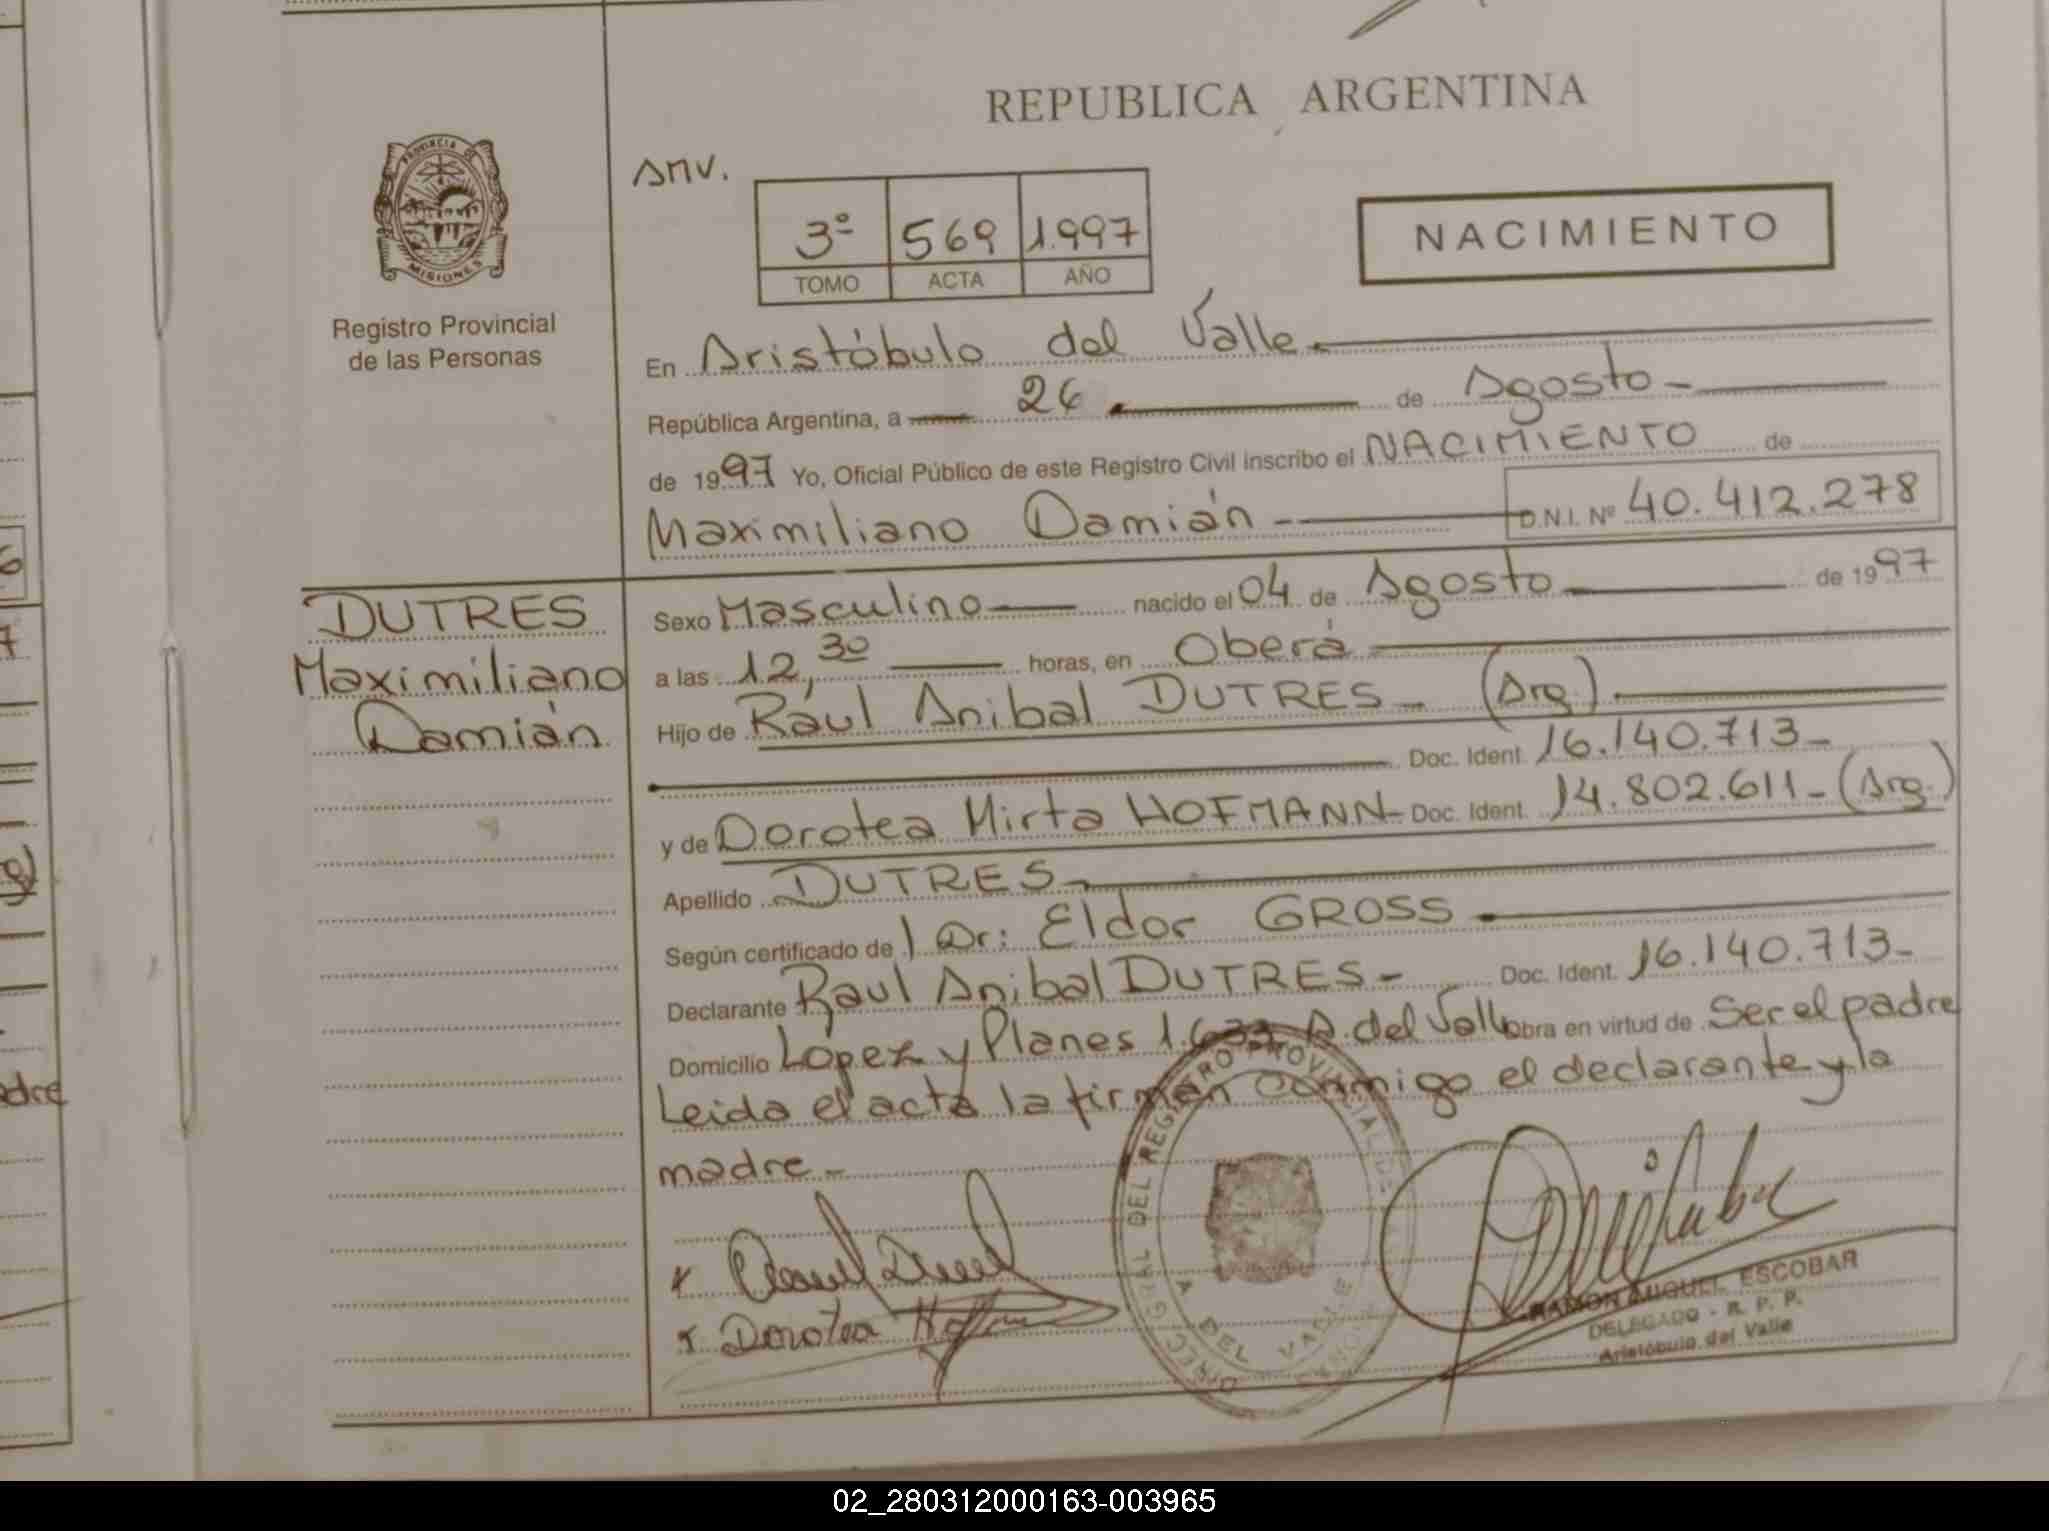 REPUBLICA ARGENTINA
PROVINCIA DE
MISIONES
Registro Provincial
de las Personas
ANV.
3º 569 1.997
TOMO ACTA AÑO
NACIMIENTO
En Aristóbulo del Valle
República Argentina, a 26 de Agosto
de 1997 Yo, Oficial Público de este Registro Civil inscribo el NACIMIENTO de
Maximiliano Damián D.N.I. Nº 40.412.278
DUTRES
Maximiliano
Damián
Sexo Masculino nacido el 04 de Agosto de 1997
a las 12,30 horas, en Oberá
Hijo de Raúl Anibal DUTRES (Arg.)
Doc. Ident. 16.140.713
y de Dorotea Mirta HOFMANN Doc. Ident. 14.802.611 (Arg.)
Apellido DUTRES
Según certificado de l Dr: Eldor GROSS
Declarante Raul Anibal DUTRES Doc. Ident. 16.140.713
Domicilio López y Planes A. del Valle obra en virtud de Ser el padre
Leida el acta la firman conmigo el declarante y la
madre
Dorotea
DIREC. GRAL DEL REGISTRO PROVINCIAL
A DEL VALLE
RAMON MIGUEL ESCOBAR
DELEGADO - R. P. P.
Aristóbulo del Valle
6
7
adre
02_280312000163-003965